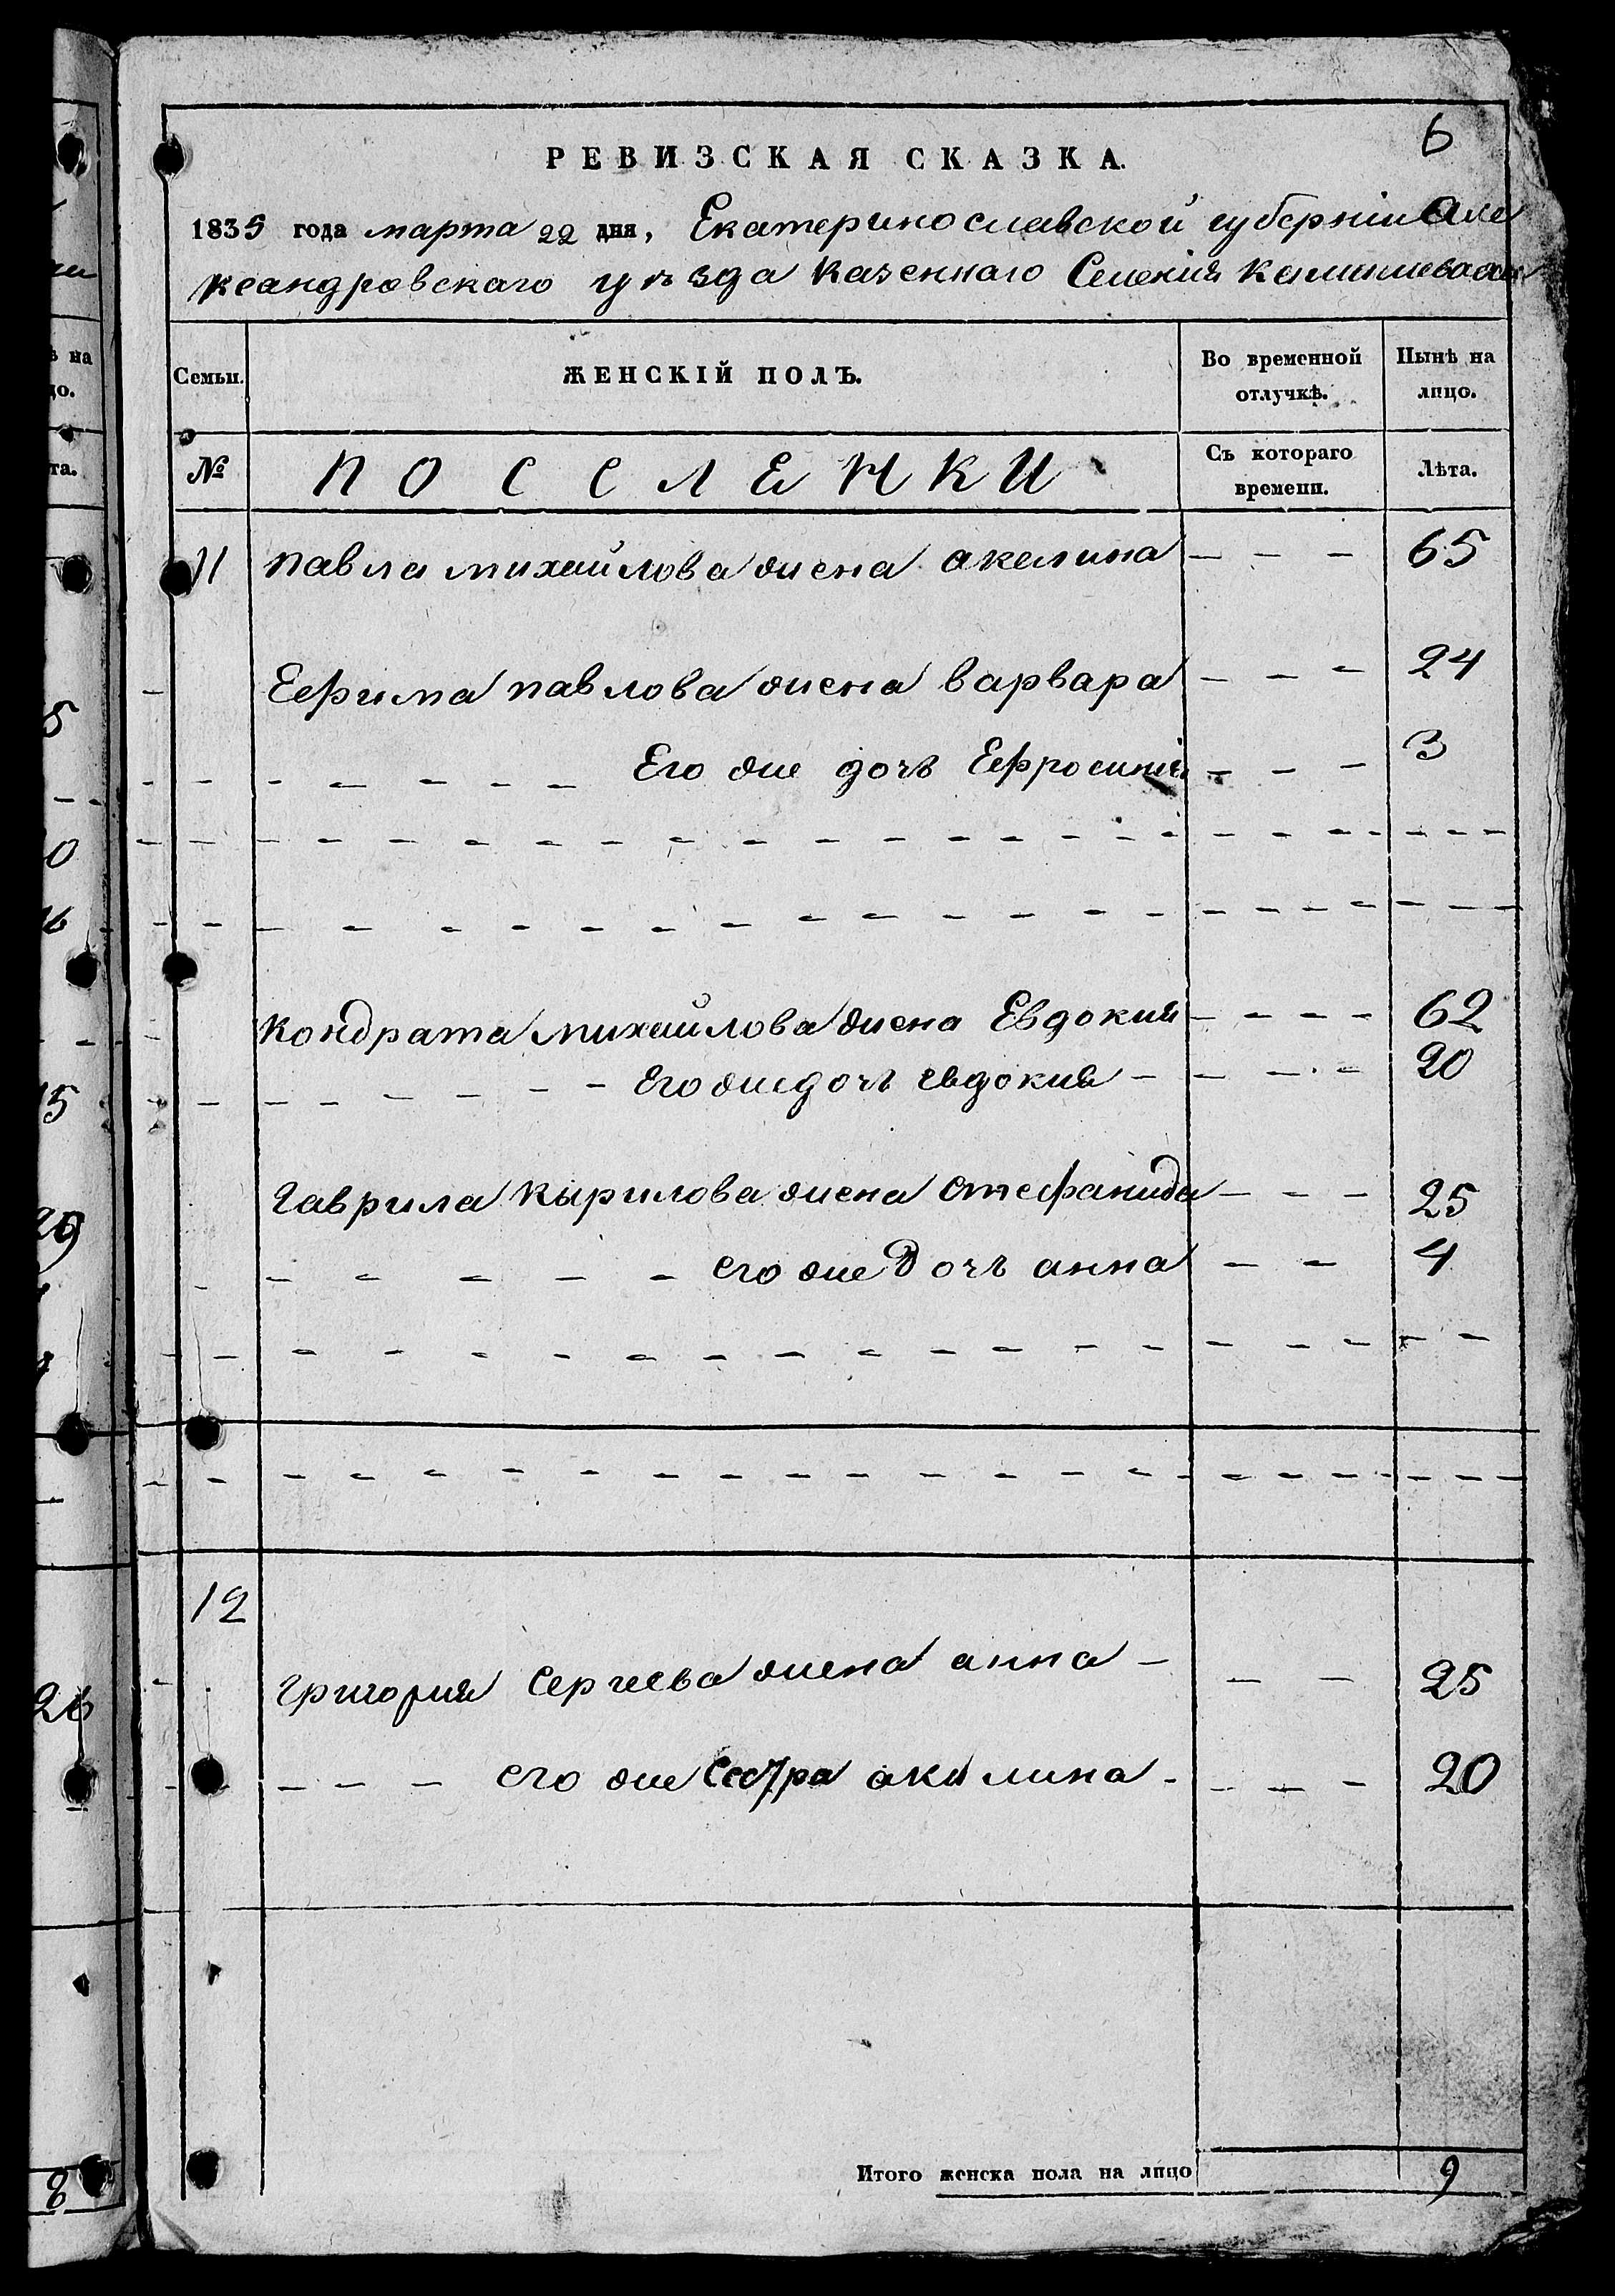 6
РЕВИЗСКАЯ СКАЗКА.
1835 года марта 22 дня, Екатеринославской губерніи Але
ксандровскаго уѣзда Казеннаго Селенія
Семьи. ЖЕНСКІЙ ПОЛЪ. Во временной отлучкѣ. Нынѣ на лицо.
№ ПОССЛЕНКИ Съ котораго времени. Лѣта.
11 Павла михайлова жена акелина - - - 65
Ефима павлова жена варвара - - - 24
Его же дочь Ефросинія - - - 3
Кондрата михайлова жена Евдокия - - - - 62
- - - - - - - Его же дочь евдокия - - - - - 20
Гаврила Кырилова жена Стефанида - - - 25
- - - - - - его же Дочь анна - - 4
12
Григория Сергеева жена анна - - - 25
- - - его же Сестра акилина - - - - 20
Итого женска пола на лицо 9
на
до.
та.
5
0
6
15
29
26
8